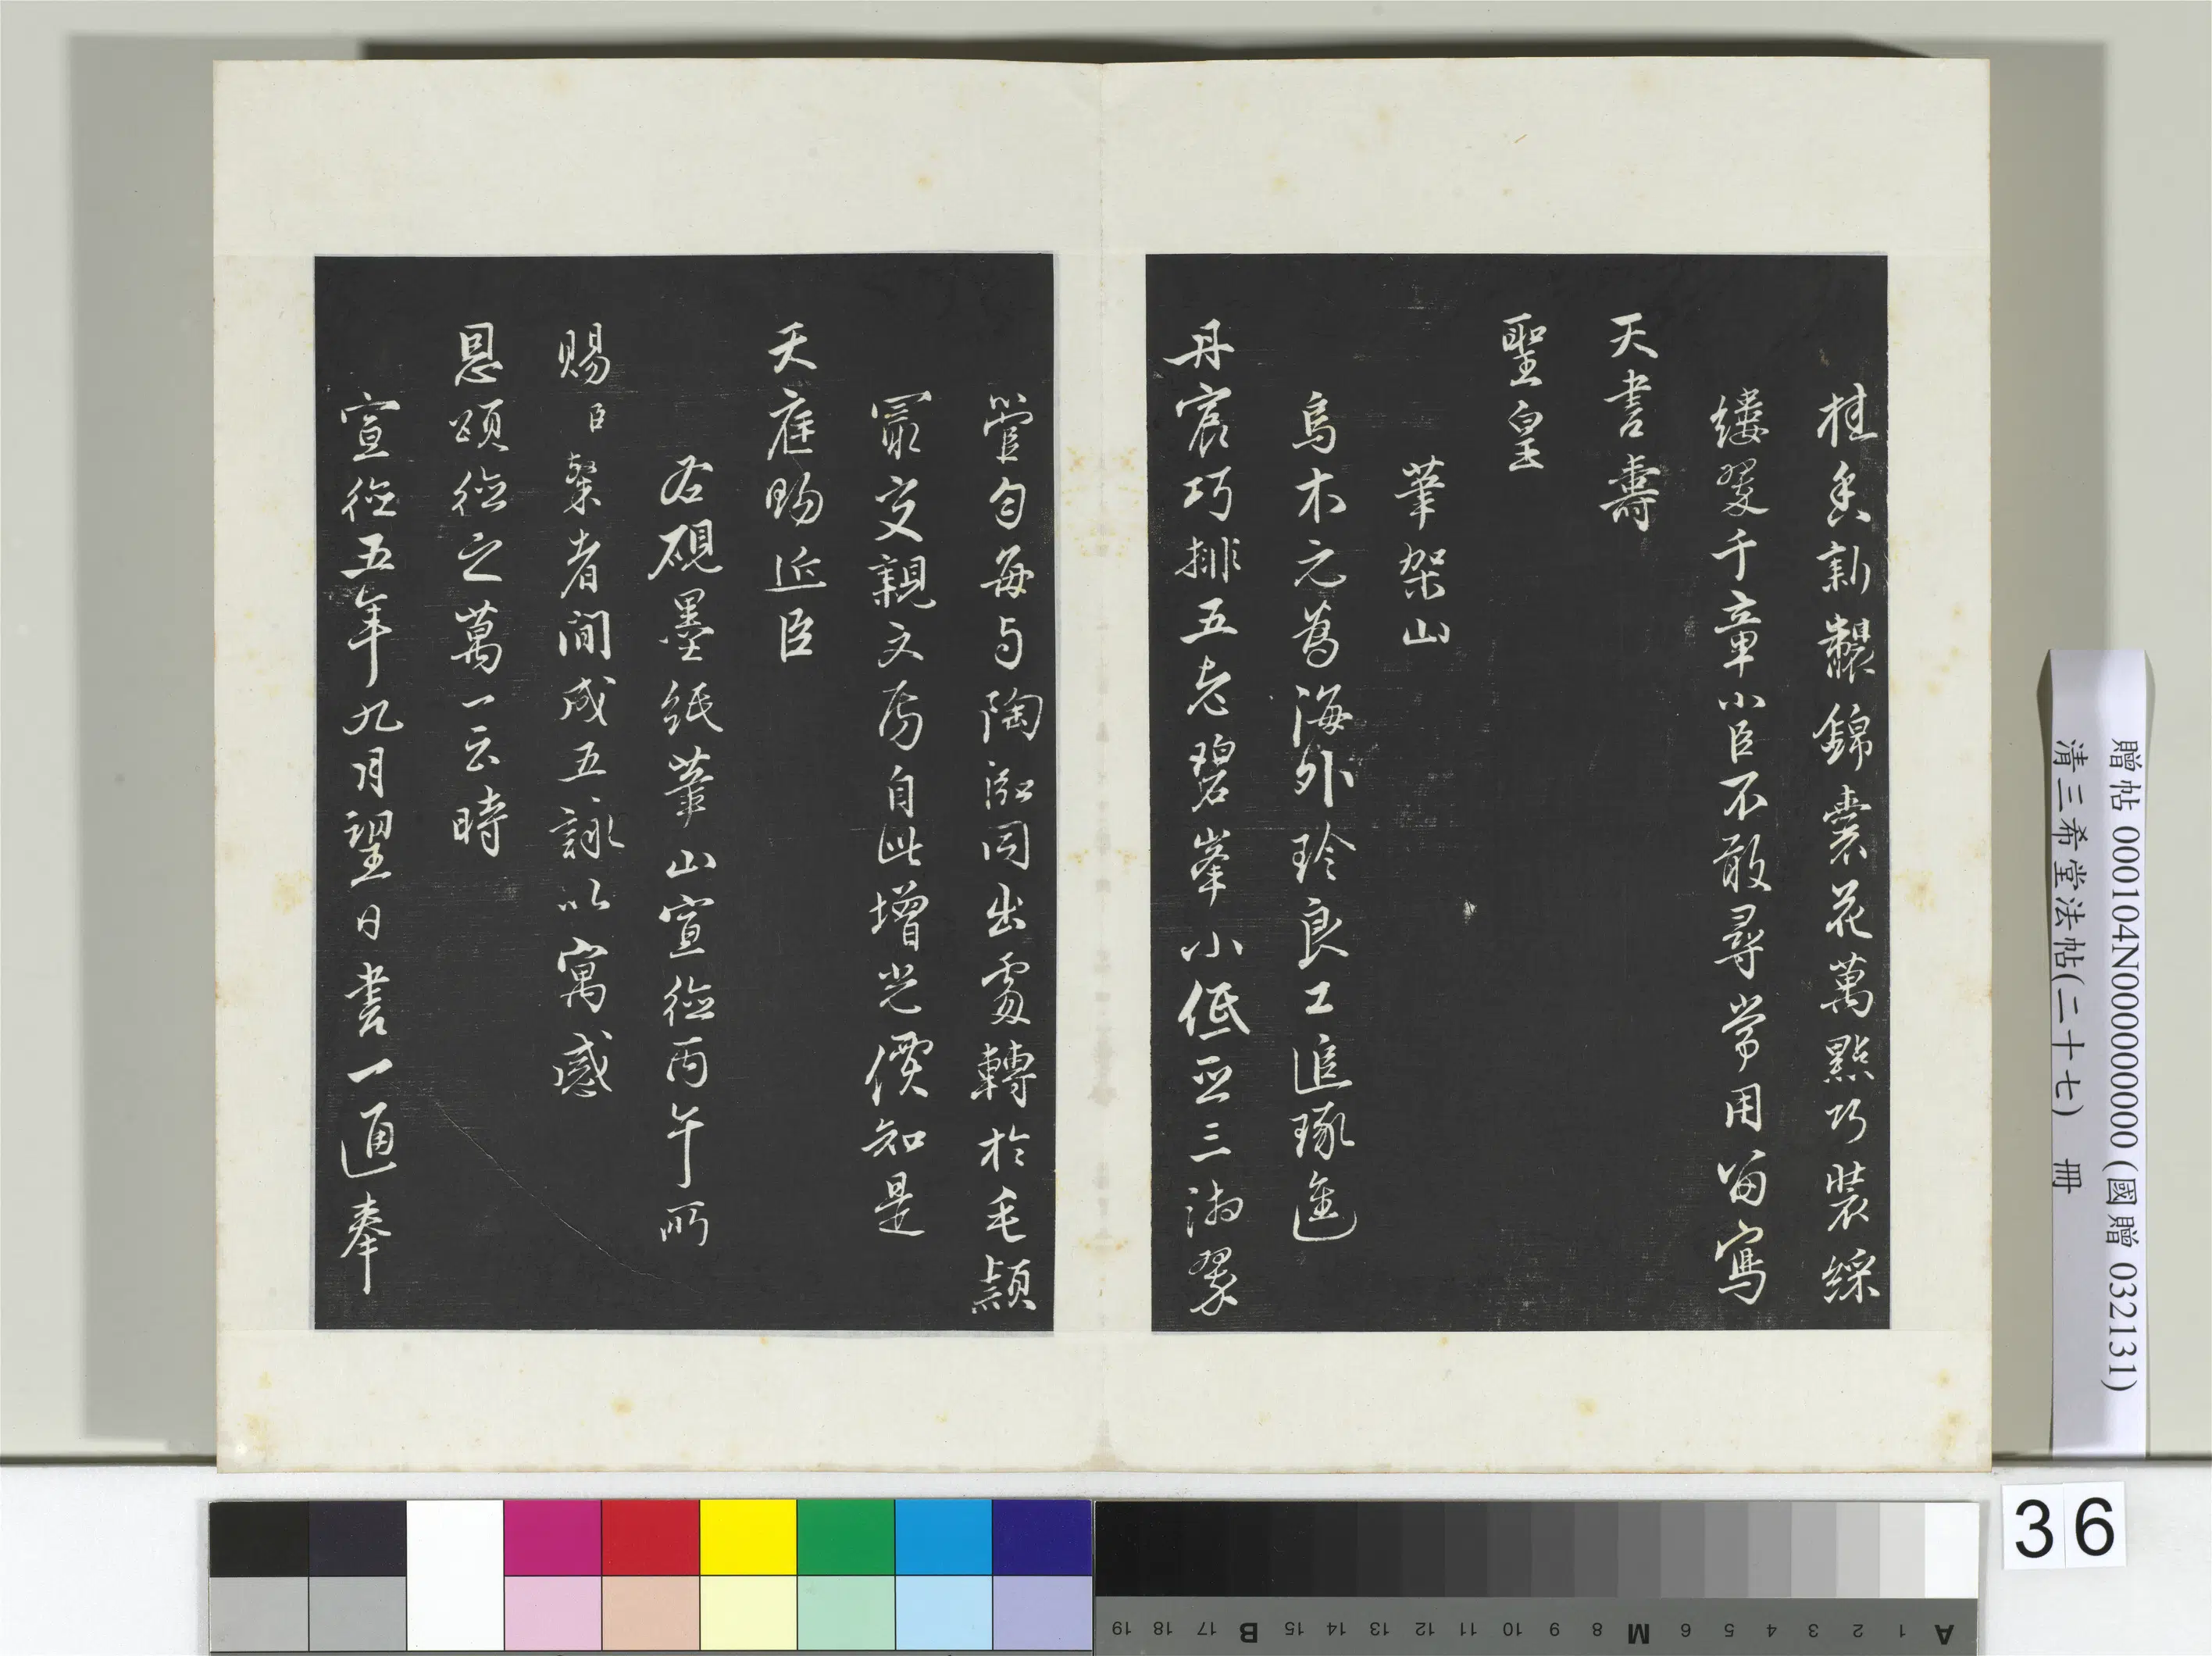 桂香新釀錦囊花萬點巧裝綵
縷翠千章小臣不敢尋常用留寫
天書壽
聖皇
筆架山
烏木元爲海外珍良工追琢進
丹宸巧排五老碧峯小低亞三湘翠
管勻每与陶泓同出處轉於毛穎
㝡交親文房自此增光價知是
天庭賜近臣
右硯墨紙筆山宣德丙午所
賜臣粲者間成五詠以寓感
恩頌德之萬一云時
宣德五年九月望日書一通奉
贈帖 000104N000000000 (國贈 032131)
清三希堂法帖(二十七) 冊
36
A 1 2 3 4 5 6 M 8 9 10 11 12 13 14 15 B 17 18 19